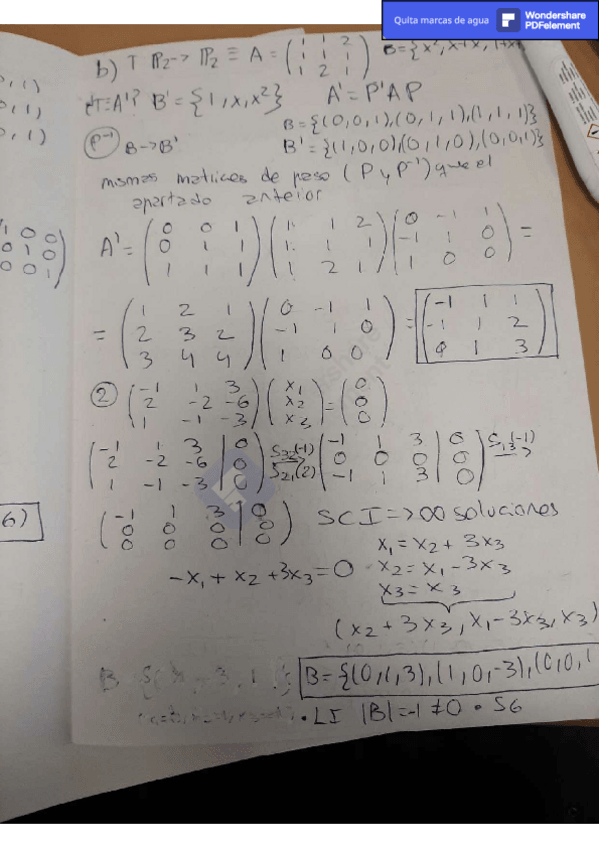 Quita marcas de agua
Wondershare
PDFelement
b) T P₂→ P₂ ≡ A = (1 1 2
1 1 1
1 2 1)
¿T≡A'? B' = {1, x, x²} A' = P⁻¹AP
P⁻¹ B→B'
B = {(0,0,1),(0,1,1),(1,1,1)}
B' = {(1,0,0),(0,1,0),(0,0,1)}
mismas matrices de paso (P y P⁻¹) que el
apartado anterior
A' = (0 0 1
0 1 1
1 1 1) (1 1 2
1 1 1
1 2 1) (0 -1 1
-1 1 0
1 0 0) =
= (1 2 1
2 3 2
3 4 4) (0 -1 1
-1 1 0
1 0 0) = (-1 1 1
-1 1 2
0 1 3)
② (-1 1 3
2 -2 -6
1 -1 -3) (x₁
x₂
x₃) = (0
0
0)
(-1 1 3 | 0
2 -2 -6 | 0
1 -1 -3 | 0) S₃₂(-1) S₂₁(2) → (-1 1 3 | 0
0 0 0 | 0
-1 1 3 | 0) S₁₃(-1) →
(-1 1 3 | 0
0 0 0 | 0
0 0 0 | 0) SCI => ∞ soluciones
-x₁ + x₂ + 3x₃ = 0
x₁ = x₂ + 3x₃
x₂ = x₁ - 3x₃
x₃ = x₃
(x₂ + 3x₃, x₁ - 3x₃, x₃)
B = {(0,1,3),(1,0,-3),(0,0,1
• LI |B| = -1 ≠ 0 • SG
1 0 0
0 1 0
0 0 1)
6)